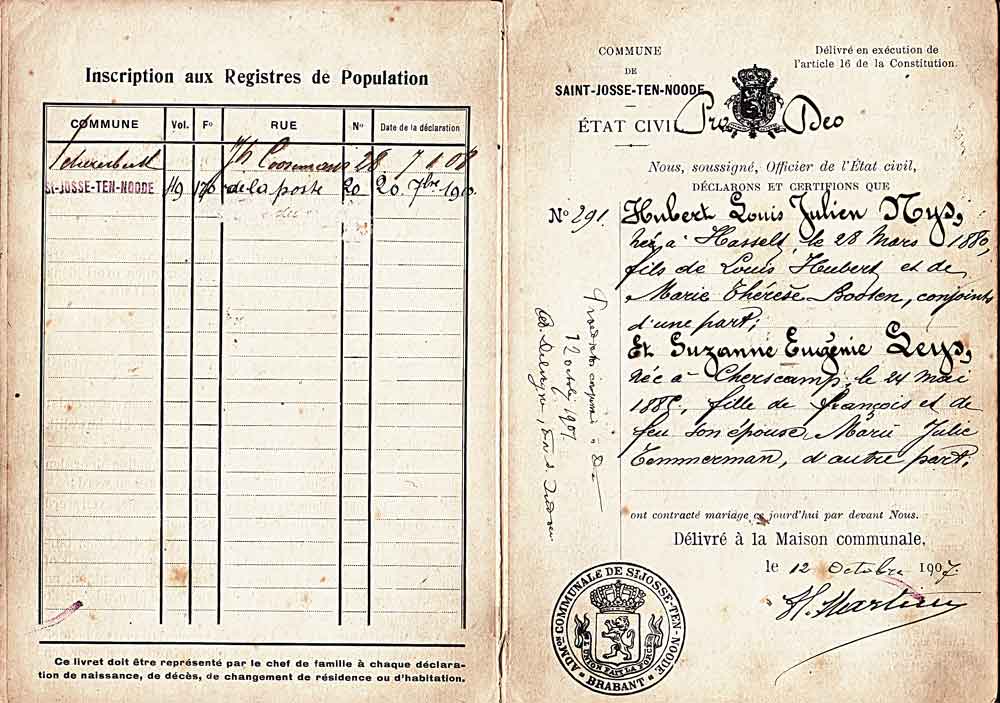 Inscription aux Registres de Population
COMMUNE Vol. Fº RUE Nº Date de la déclaration
Coosmans 28 7 08
St-JOSSE-TEN-NOODE 119 170 de la poste 20 20. 7bre 1910.
Ce livret doit être représenté par le chef de famille à chaque déclara-
tion de naissance, de décès, de changement de résidence ou d'habitation.
COMMUNE
DE
SAINT-JOSSE-TEN-NOODE
ÉTAT CIVIL
Délivré en exécution de
l'article 16 de la Constitution.
Pro Deo
Nous, soussigné, Officier de l'État civil,
DÉCLARONS ET CERTIFIONS QUE
Nº 291. Hubert Louis Julien Nys,
né à Hasselt, le 28 Mars 1880,
fils de Louis Hubert et de
Marie Thérèse Boosen, conjoints
d'une part;
Et Suzanne Eugénie Leys,
née à Cherscamp, le 24 mai
fille de françois et de
feu son épouse Marie Julie
Temmerman, d'autre part.
12 octobre 1907
ont contracté mariage ce jourd'hui par devant Nous.
Délivré à la Maison communale,
le 12 Octobre 1907.
H. Martin
ADMON COMMUNALE DE ST JOSSE-TEN-NOODE
L'UNION FAIT LA FORCE
BRABANT